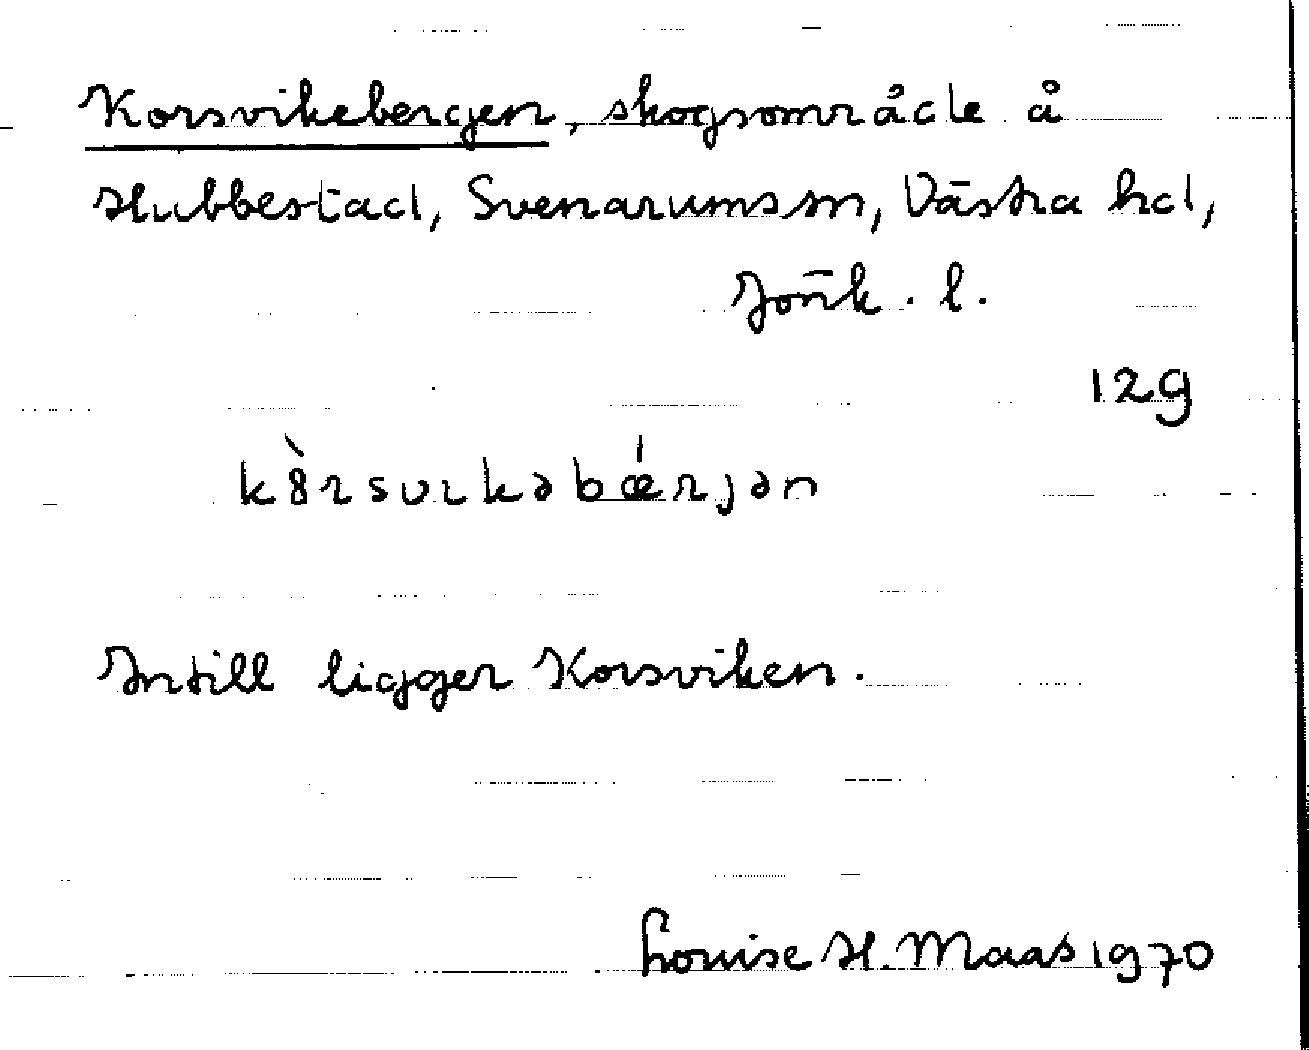 Korsvikebergen, skogsområde å
Hubbestad, Svenarums sn, Västra hd,
Jönk. l.
129
kòrsvɩkəbǽrjən
Intill ligger Korsviken.
Louise H. Maas 1970